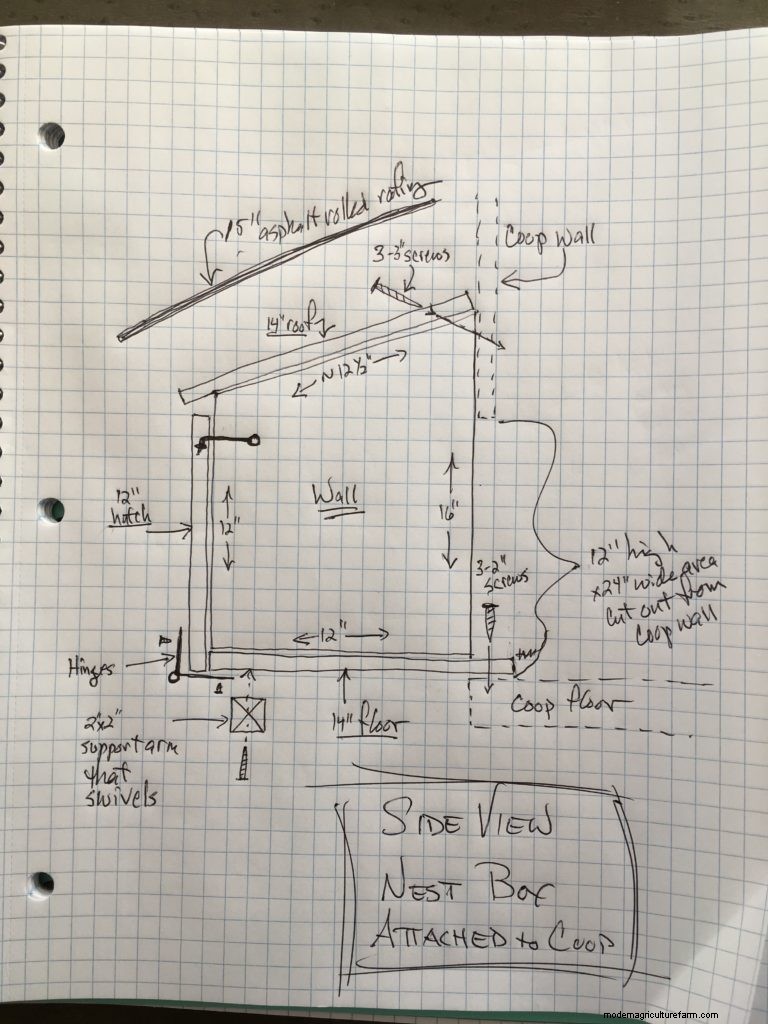 15" asphalt rolled rofing
Coop Wall
3-3" screws
14" roof
~12 ½"
12"
hatch
12"
Wall
16"
3-2"
screws
12" high
x24" wide area
cut out from
coop wall
12"
Hinges
14" floor
Coop floor
2"x2"
support arm
that
swivels
SIDE VIEW
NEST BOX
ATTACHED to COOP
modernagriculturefarm.com